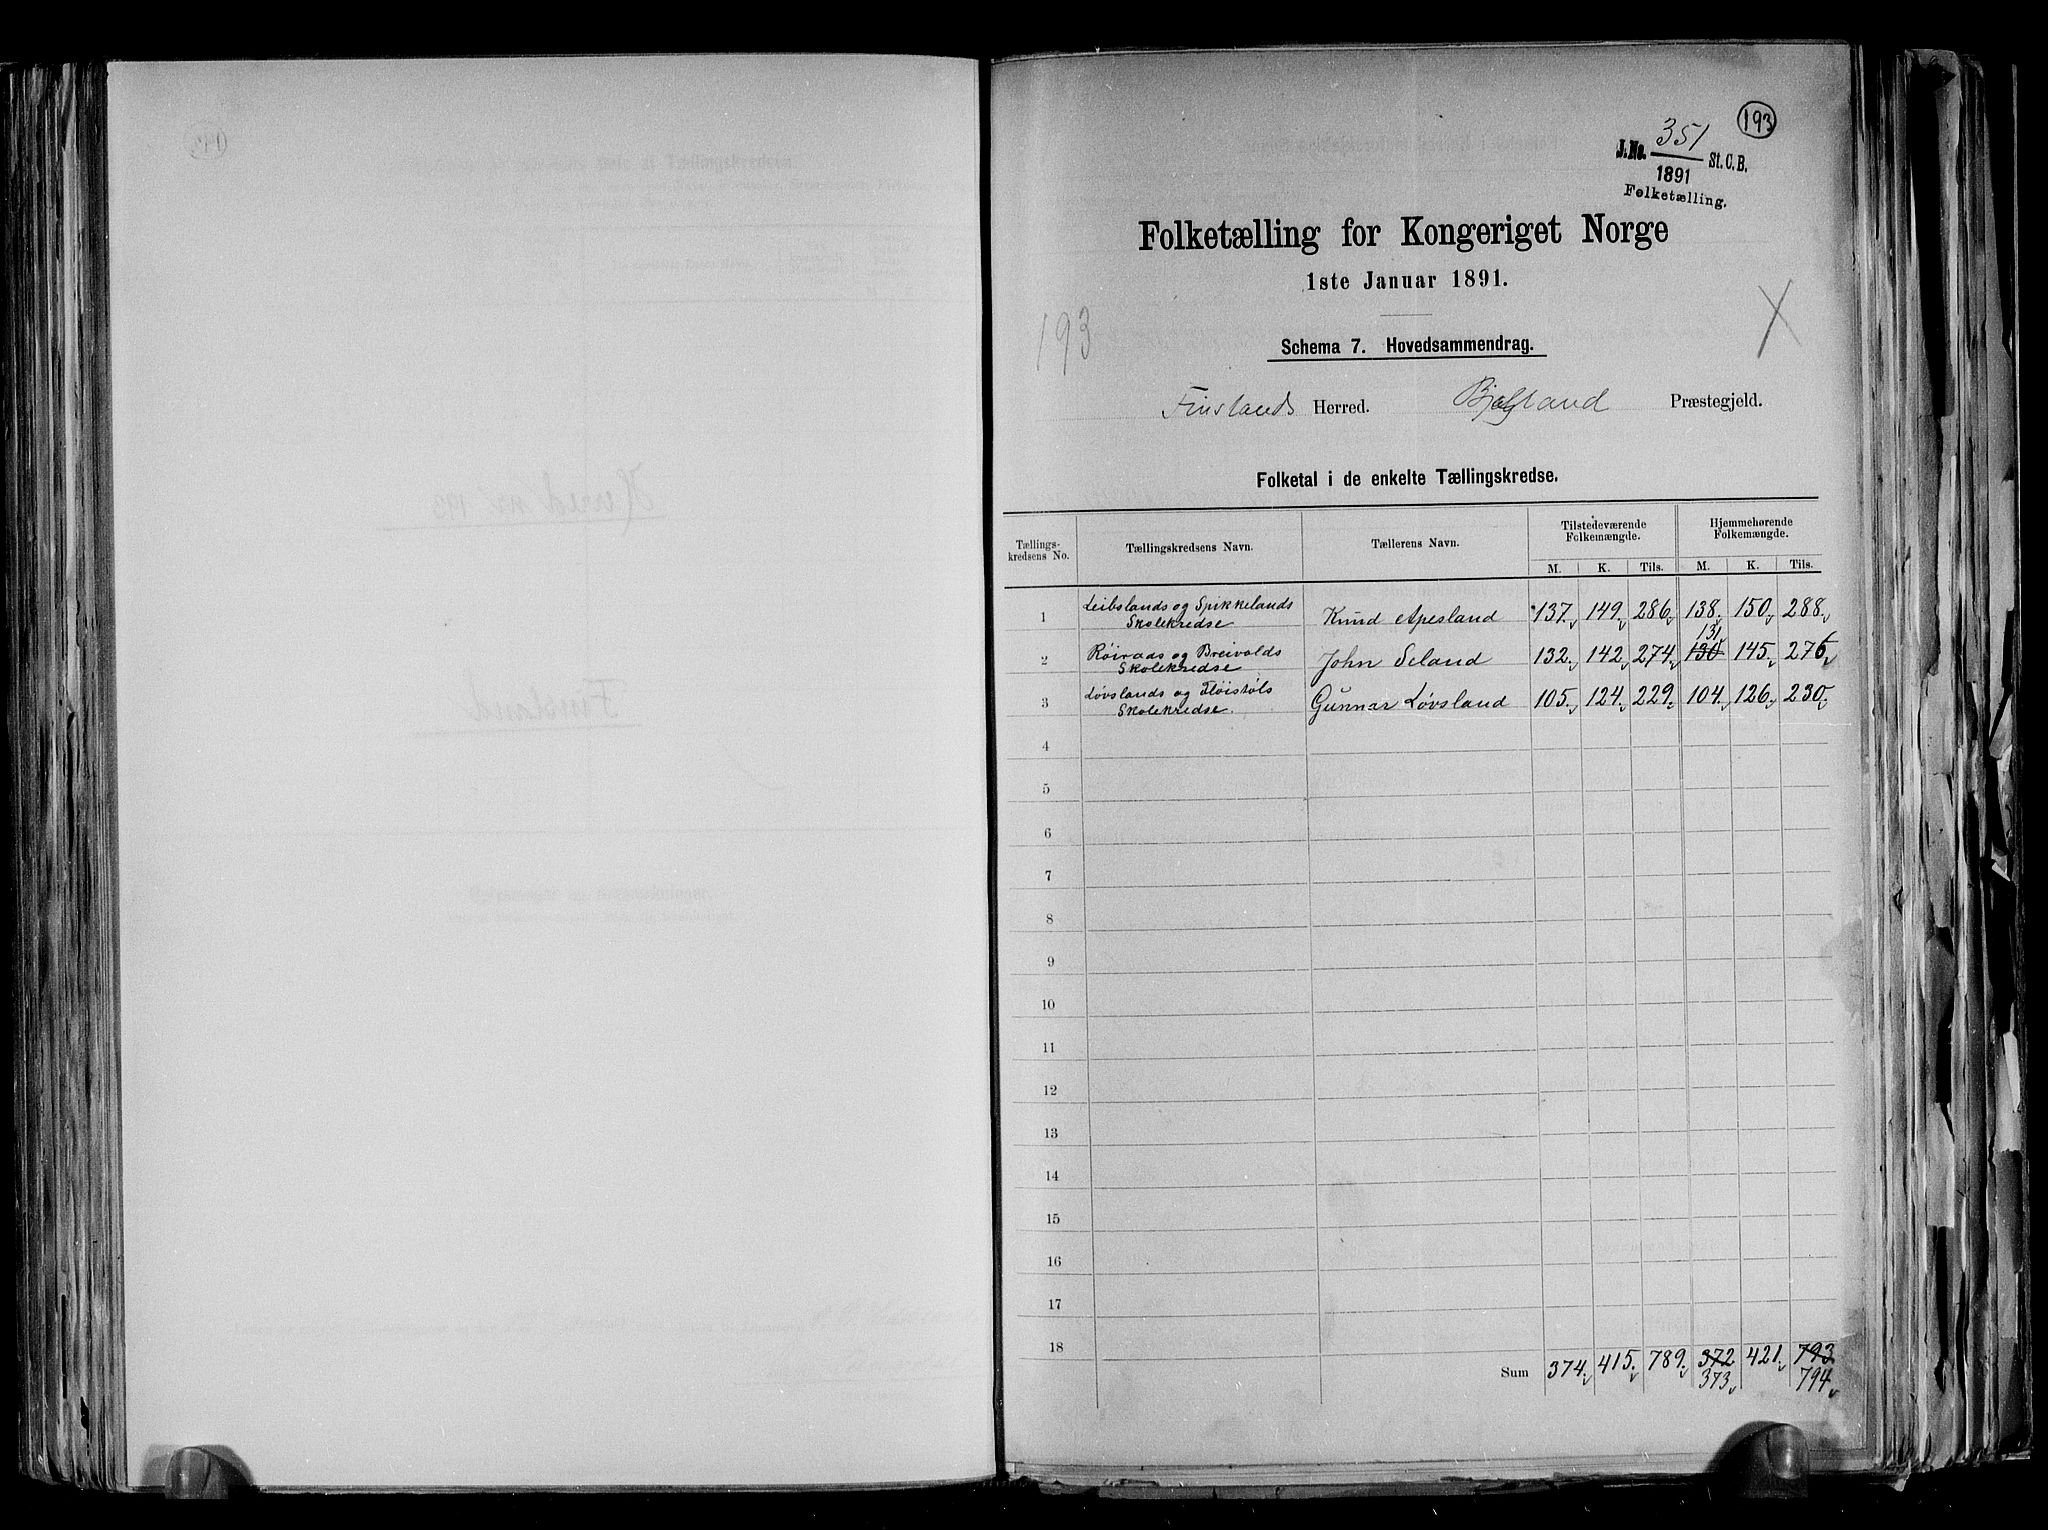 193
J.No. 351 St. C. B.
1891
Folketælling.
Folketælling for Kongeriget Norge
1ste Januar 1891.
193
X
Schema 7. Hovedsammendrag.
Finslands Herred. Bjelland Præstegjeld.
Folketal i de enkelte Tællingskredse.
Tællings-kredsens No. Tællingskredsens Navn. Tællerens Navn. Tilstedeværende Folkemængde. Hjemmehørende Folkemængde.
M. K. Tils. M. K. Tils.
1 Leibslands og Spikkelands Skolekredse Knud Apesland 137 149 286 138 150 288
2 Røiraas og Breivolds Skolekredse John Seland 132 142 274 130 131 145 276
3 Løvslands og Fløistøls Skolekredse. Gunnar Løvsland 105 124 229 104 126 230
4
5
6
7
8
9
10
11
12
13
14
15
16
17
18
Sum 374 415 789 372 421 793
373 794
Herred nr 193
Finsland